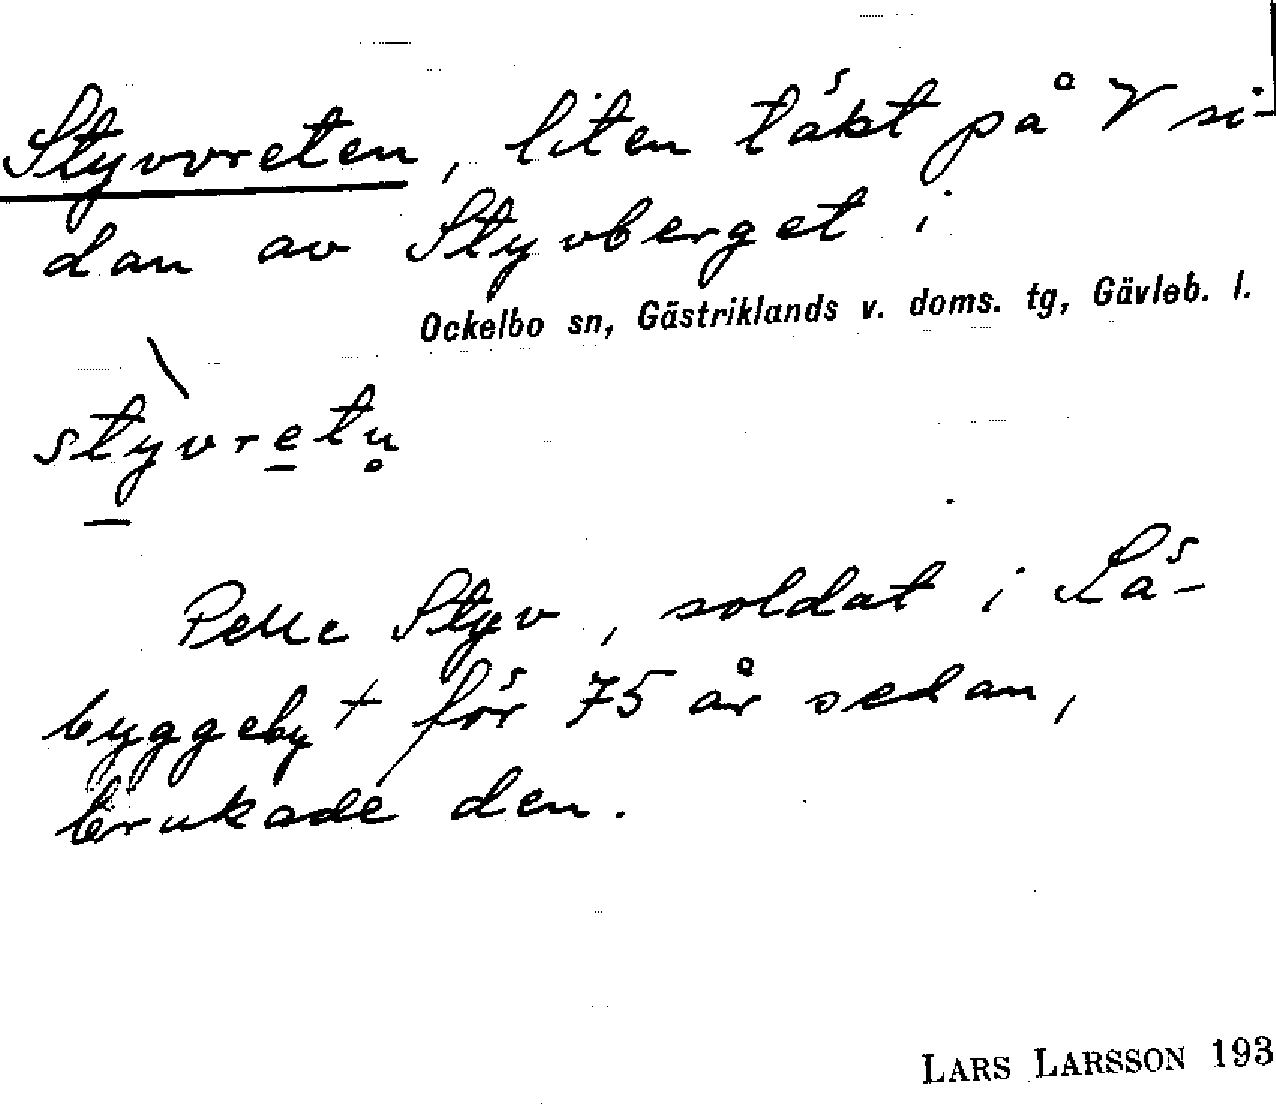 Styvvreten, liten täkt på V si-
dan av Styvberget i
Ockelbo sn, Gästriklands v. doms. tg, Gävleb. l.
stỳvretn̥
Pelle Styv, soldat i Lä-
byggeby † för 75 år sedan,
brukade den.
LARS LARSSON 193